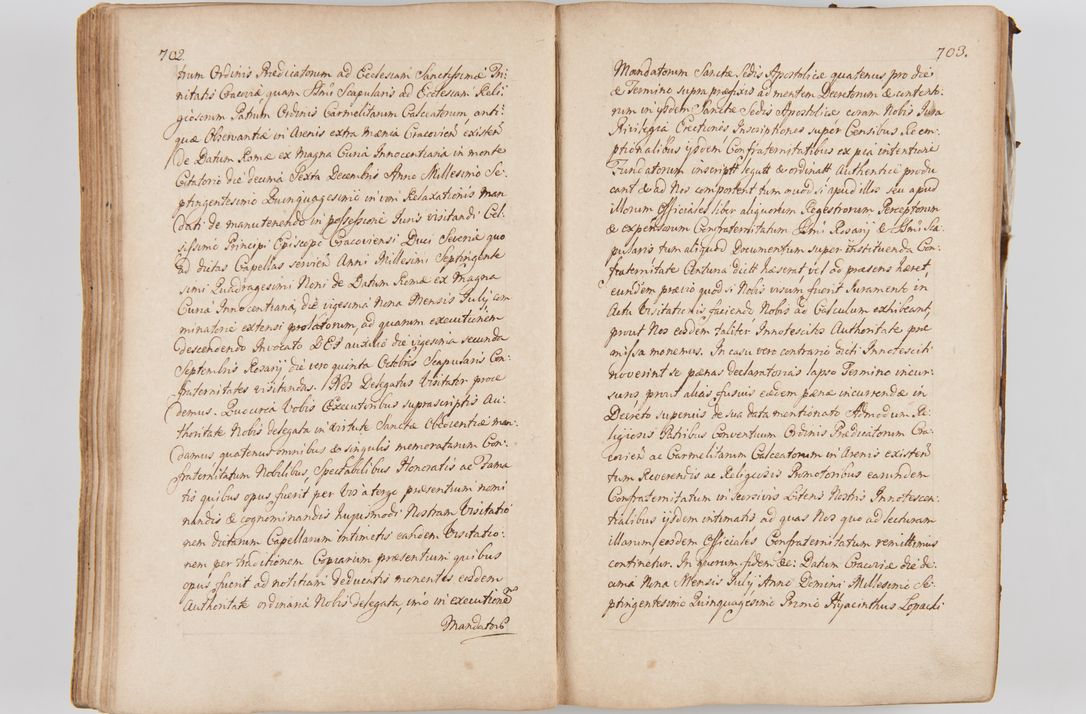 702
trum Ordinis Prædicatorum ad Ecclesiam Sanctissimæ Tri
nitatis Cracoviæ quam Ssmi Scapularis ad Ecclesiam Reli
giosorum Patrum Ordinis Carmelitarum Calceatorum, anti:
quæ Observantiæ in Arenis extra Mænia Cracovien existen
de Datum Romæ ex Magna Curia Innocentiana in monte
Citatorio die decima Sexta Decembris Anno Millesimo Se
ptingentesimo Quinquagesimo in vim Relaxationis Man
dati de manutenendo in possessione Iuris visitandi Cel
sissimo Principi Episcopo Cracoviensi Duci Severiæ quo
ad dictas Capellas servien Anni Millesimi Septingente
simi Quadragesimi Noni de Datum Romæ ex Magna
Curia Innocentiana, die vigesima nona Mensis Iulij com
minatorie extensi prolatorum, ad quarum executionem
descendendo Invocato DEI auxilio die vigesima secunda
Septembris Rosarij, die vero quinta Octobris Scapularis Con:
fraternitates visitandas. / Nos Delegatus Visitator proce
demus. Quocirca Vobis Executoribus suprascriptis Au:
thoritate Nobis delegata in virtute Sanctæ Obedientiæ man:
damus quatenus omnibus & singulis memoratarum Con:
fraternitatum Nobilibus, Spectabilibus Honoratis ac Fama
tis quibus opus fuerit per Vos a tergo præsentium nomi
nandis & cognominandis hujusmodi Nostram Visitatio
nem dictarum Capellarum intimetis eandem Visitatio:
nem per traditionem Copiarum præsentium quibus
opus fuerit ad notitiam deducatis monentes eosdem
Authoritate ordinaria Nobis delegata, imo in executione
Mandator
703.
Mandatorum Sanctæ Sedis Apostolicæ quatenus pro die
& Termino supra præfixis ad mentem Decretorum & content:
rum in ijsdem Sanctæ Sedis Apostolicæ coram Nobis Iura
Privilegia Erectiones Inscriptiones super Censibus Re em:
ptionalibus ijsdem Confraternitatibus ex pia intentione
Fundatorum inscriptt legatt & ordinatt Authentice produ
cant & ad Nos comportent tum quod si apud illos seu apud
illorum Officiales liber aliquorum Regestrorum Perceptorum
& expensorum Confraternitatum Ssmi Rosarij & Ssmi Sca
pularis tum aliquod Documentum super instituenda Con:
fraternitate Antiqua dictt hæserat vel ad præsens hæret,
eundem prævio quod si Nobis visum fuerit Iuramento in
Actu Visitationis faciendo Nobis ad Calculum exhibeant,
prout Nos eosdem taliter Innotescitos Authoritate præ
missa monemus. In casu vero contrario dicti Innotesciti
noverint se pænas declaratorias lapso Termino incur:
suros, prout alias fusius eædem pænæ incurrendæ in
Decreto superius de sua data mentionato Admodum Re
ligiosis Patribus Conventuum Ordinis Prædicatorum Cra
covien ac Carmelitarum Calceatorum in Arenis existen
tum Reverendis ac Religiosis Promotoribus earundem
Confraternitatum in Seorsivis Literis Nostris Innotescen:
tialibus ijsdem intimatis ad quas Nos quo ad lecturam
illarum eosdem Officiales Confraternitatum remittimus
continetur. In quorum fidem &c: Datum Cracoviæ die de:
cima Nona Mensis Iulij Anno Domini Millesimo Se
ptingentesimo Quinquagesimo Primo Hyacinthus Łopacki